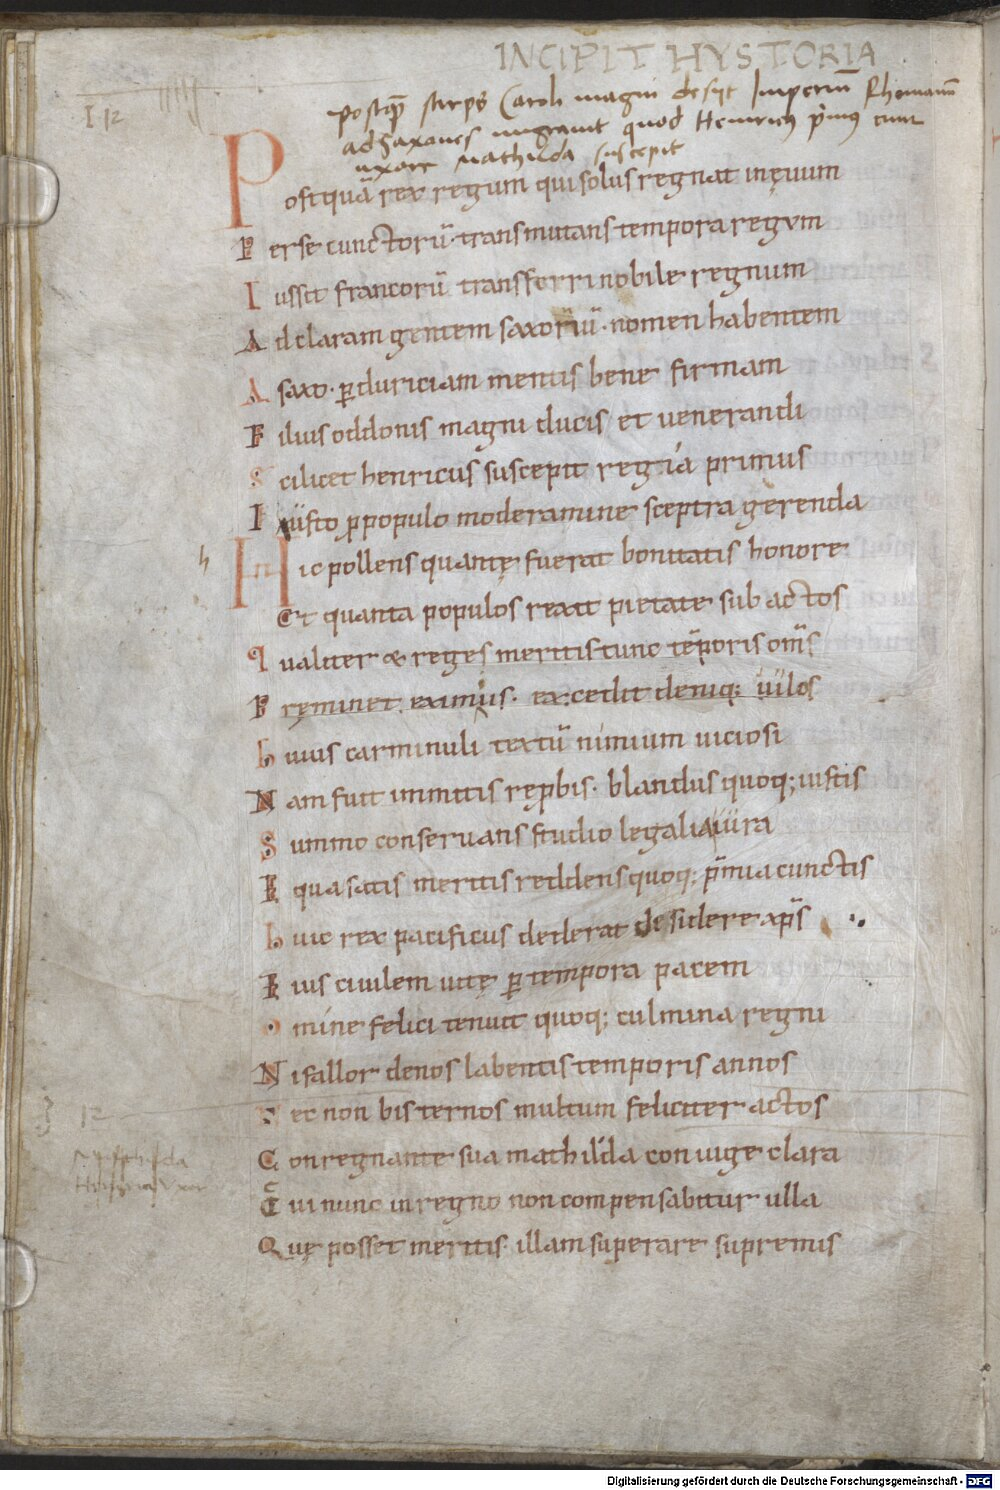 INCIPIT HYSTORIA
I 12
Postq̄ stirps Caroli magni desijt Imperiū Rhomanū
ad Saxones migravit quod Heinricus p̄mus cum
uxore Mathilda suscepit
Postquā rex regum qui solus regnat in ęvum
Per se cunctorū· transmutans tempora regvm
Iussit francorū transferri nobile regnum
Ad claram gentem saxonū· nomen habentem
A saxo· ꝑ duriciam mentis bene firmam
Filius oddonis magni ducis et venerandi
Scilicet henricus suscepit regna primus
Iusto ꝓ populo moderamine sceptra gerenda
Hic pollens quantę fuerat bonitatis honore
Et quanta populos rexit pietate sub actos
Qualiter & reges meritis tunc tēporis om̄s
Pręminet eximiis· excedit deniq; uilos
huius carminuli textū nimium uiciosi
Nam fuit inmitis rep̱bis· blandus quoq; iustis
Summo conseruans studio legalia iura
Equa satis meritis reddens quoq; p̄mia cunctis
huic rex pacificus dederat de sidere xp̄s
Eius ciuilem uitę ꝑ tempora pacem
Omine felici tenuit quoq; culmina regni
Ni fallor denos labentis temporis annos
12
Nec non bis ternos multum feliciter actos
Mathilda
Conregnante sua mathilda coniuge clara
Cui nunc in regno non compensabitur ulla
Quę posset meritis· illam superare supremis
Digitalisierung gefördert durch die Deutsche Forschungsgemeinschaft - DFG